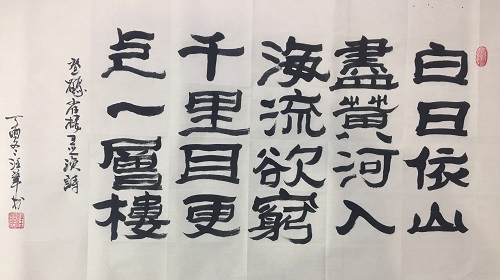 白日依山
盡黄河入
海流欲窮
千里目更
上一層樓
登鸛雀樓王之渙詩
丁酉冬